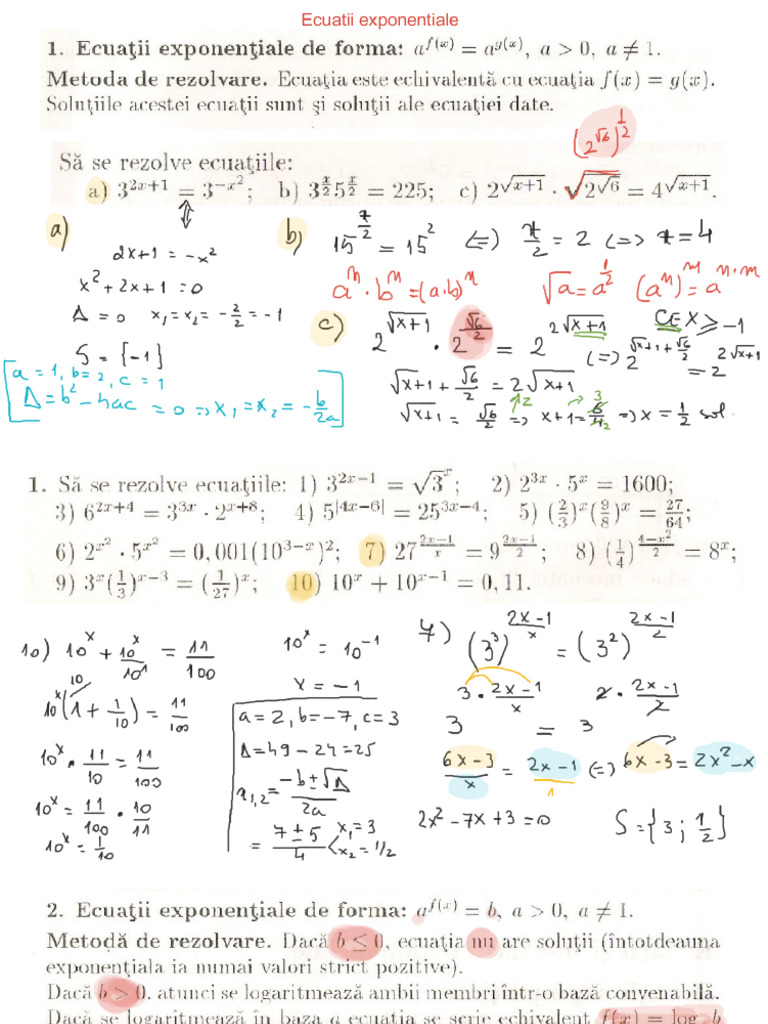 Ecuatii exponentiale
1. Ecuaţii exponenţiale de forma: a^{f(x)} = a^{g(x)}, a > 0, a ≠ 1.
Metoda de rezolvare. Ecuaţia este echivalentă cu ecuaţia f(x) = g(x).
Soluţiile acestei ecuaţii sunt şi soluţii ale ecuaţiei date.
(2^{√6})^{1/2}
Să se rezolve ecuaţiile:
a) 3^{2x+1} = 3^{-x²}; b) 3^{x/2}5^{x/2} = 225; c) 2^{√(x+1)} · √(2^{√6}) = 4^{√(x+1)}.
a)
2x+1 = -x²
x² + 2x + 1 = 0
Δ = 0 x₁ = x₂ = -2/2 = -1
S = {-1}
a = 1, b = 2, c = 1
Δ = b² - 4ac = 0 => x₁ = x₂ = -b/2a
b) 15^{x/2} = 15² <=> x/2 = 2 <=> x = 4
a^n · b^n = (a·b)^n √a = a^{1/2} (a^n)^m = a^{n·m}
c) 2^{√(x+1)} · 2^{√6/2} = 2^{2√(x+1)} CE x ≥ -1
(=) 2^{√(x+1) + √6/2} = 2^{2√(x+1)}
√(x+1) + √6/2 = 2√(x+1)
√(x+1) = √6/2 |² => x+1 = 6/4 3/2 => x = 1/2 sol.
1. Să se rezolve ecuaţiile: 1) 3^{2x-1} = √3^x; 2) 2^{3x} · 5^x = 1600;
3) 6^{2x+4} = 3^{3x} · 2^{x+8}; 4) 5^{|4x-6|} = 25^{3x-4}; 5) (2/3)^x(9/8)^x = 27/64;
6) 2^{x²} · 5^{x²} = 0,001(10^{3-x})²; 7) 27^{(2x-1)/x} = 9^{(2x-1)/2}; 8) (1/4)^{(4-x²)/2} = 8^x;
9) 3^x(1/3)^{x-3} = (1/27)^x; 10) 10^x + 10^{x-1} = 0,11.
10) 10^x + 10^x/10¹ = 11/100
10/
10^x(1 + 1/10) = 11/100
10^x · 11/10 = 11/100
10^x = 11/100 · 10/11
10^x = 1/10
10^x = 10^{-1}
x = -1
a = 2, b = -7, c = 3
Δ = 49 - 24 = 25
x₁,₂ = (-b ± √Δ)/2a
= (7 ± 5)/4 < x₁ = 3
x₂ = 1/2
7) (3³)^{(2x-1)/x} = (3²)^{(2x-1)/2}
3^{3 · (2x-1)/x} = 3^{2 · (2x-1)/2}
(6x-3)/x = (2x-1)/1 (=) 6x - 3 = 2x² - x
2x² - 7x + 3 = 0 S = {3; 1/2}
2. Ecuaţii exponenţiale de forma: a^{f(x)} = b, a > 0, a ≠ 1.
Metodă de rezolvare. Dacă b ≤ 0, ecuaţia nu are soluţii (întotdeauna
exponenţiala ia numai valori strict pozitive).
Dacă b > 0, atunci se logaritmează ambii membri într-o bază convenabilă.
Dacă se logaritmează în baza a ecuaţia se scrie echivalent f(x) = log b